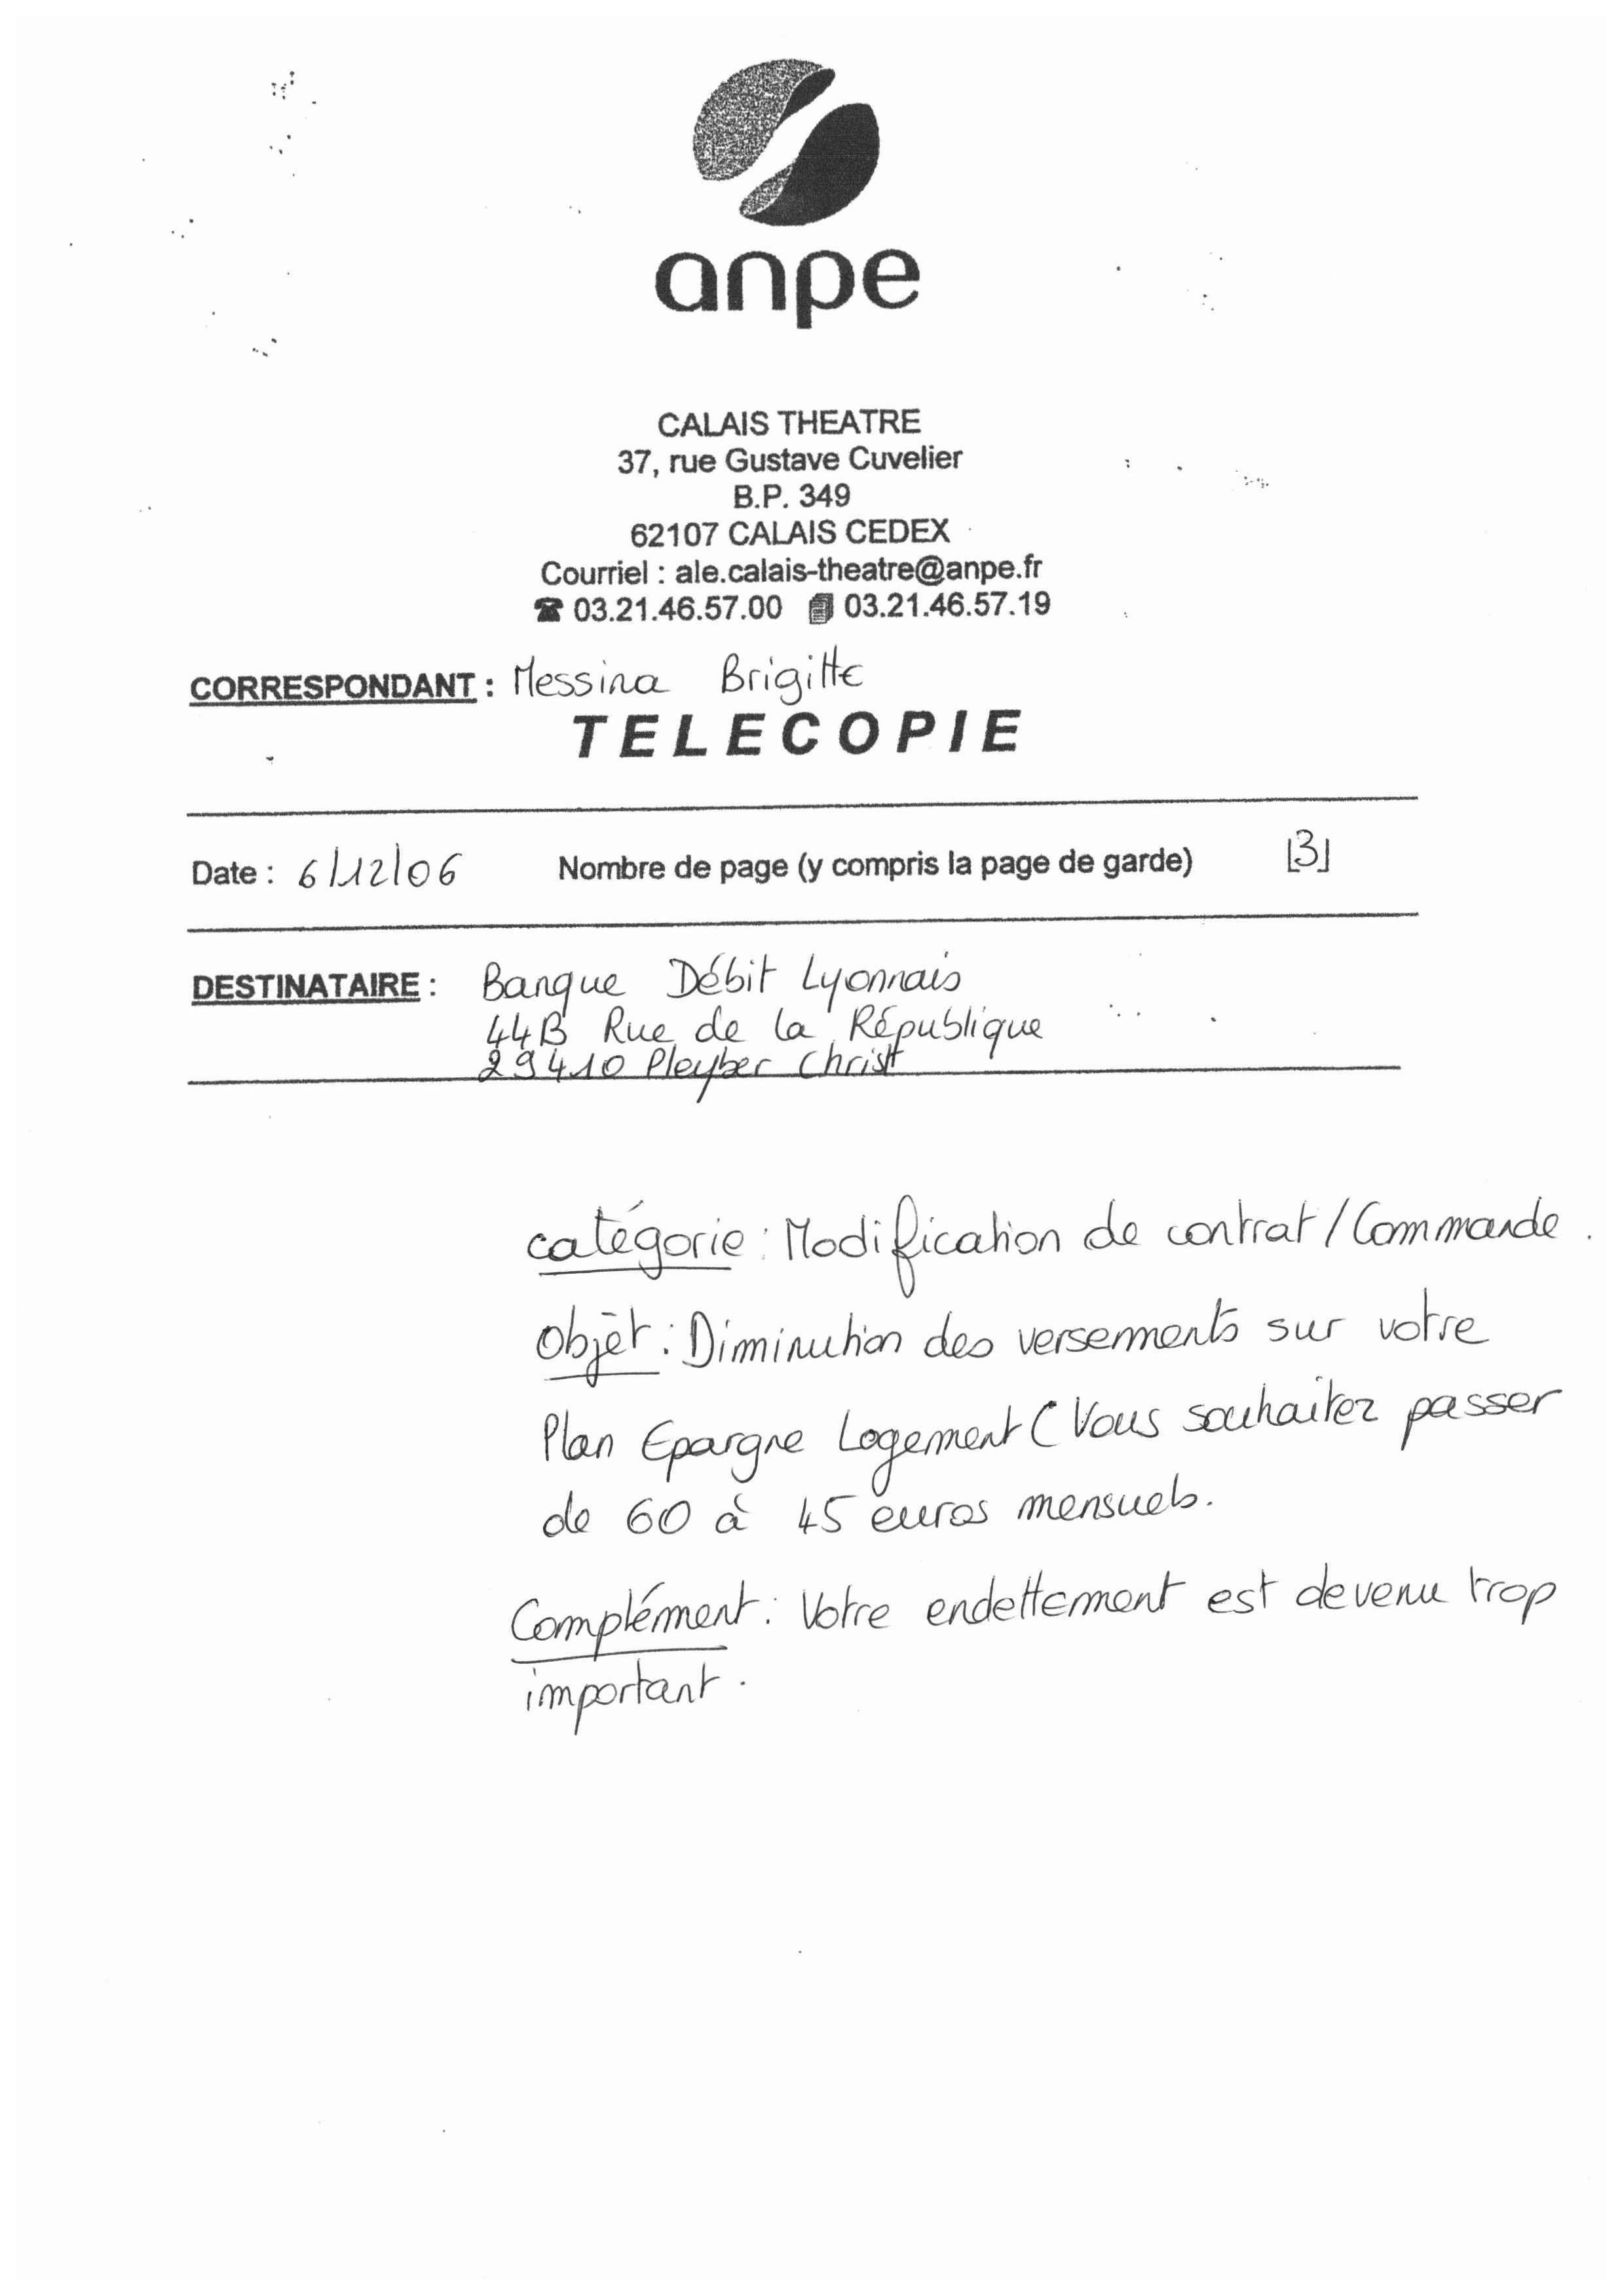 anpe
CALAIS THEATRE
37, rue Gustave Cuvelier
B.P. 349
62107 CALAIS CEDEX
Courriel : ale.calais-theatre@anpe.fr
☎ 03.21.46.57.00 03.21.46.57.19
CORRESPONDANT : Messina Brigitte
TELECOPIE
Date : 6/12/06 Nombre de page (y compris la page de garde) [3]
DESTINATAIRE : Banque Débit Lyonnais
44B Rue de la République
29410 Pleyber Christ
catégorie : Modification de contrat / Commande.
Objet : Diminution des versements sur votre
Plan Epargne Logement ( Vous souhaitez passer
de 60 à 45 euros mensuels.
Complément : Votre endettement est devenu trop
important.